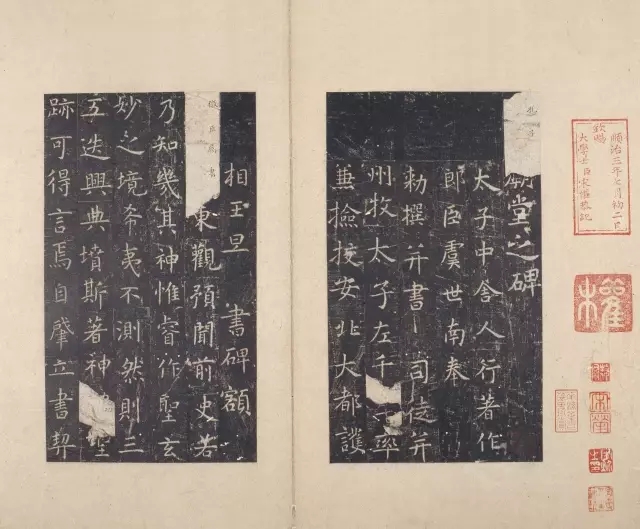 廟堂之碑
太子中舍人行著作
郎臣虞世南奉
勑撰并書 司徒并
州牧太子左千 率
兼撿挍安北大都護
相王旦 書碑額
東觀預聞前史若
乃知幾其神惟睿作聖玄
妙之境希夷不測然則三
五迭興典墳斯著神 聖
跡可得言焉自肇立書契
順治三年七月初二日
欽賜
大學士臣宋權恭記
權